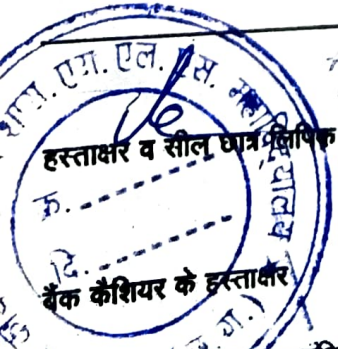 शास. एम. एल. एस. महाविद्यालय
हस्ताक्षर व सील छात्र लिपिक
क. ------------
दि. ------------
बैंक कैशियर के हस्ताक्षर